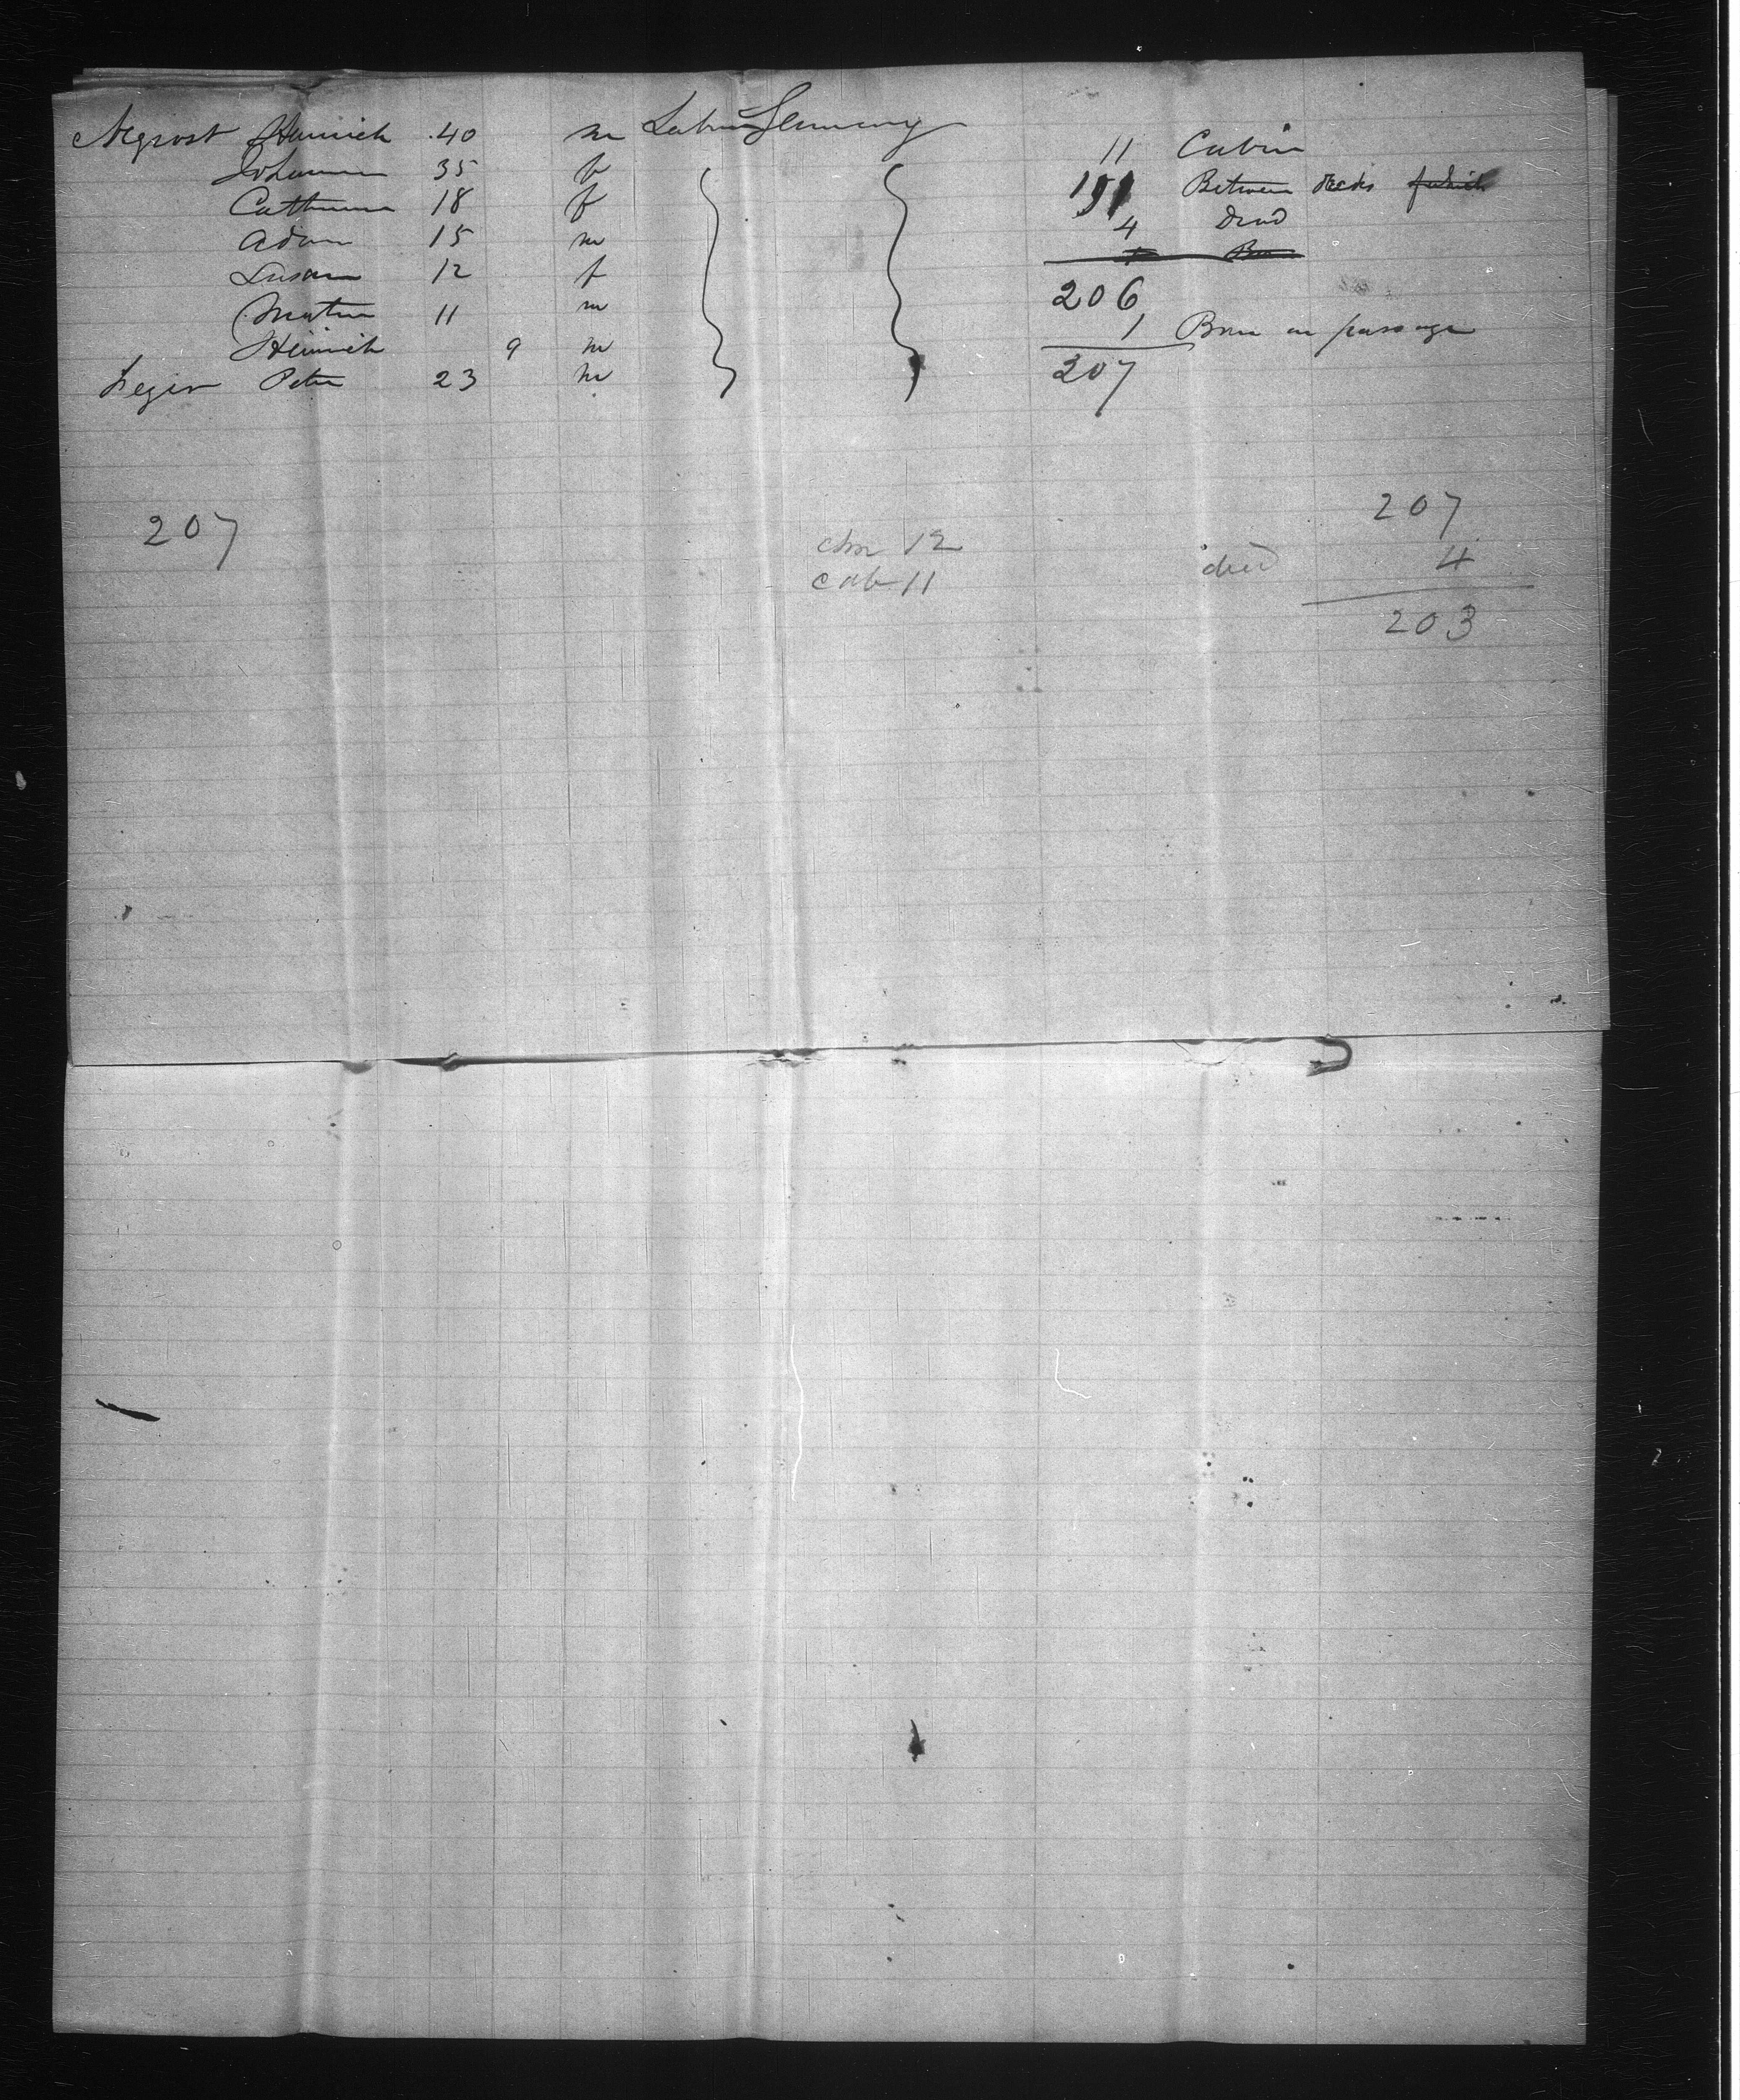 Negrost Heinrich 40 m Labor Germany
Johanna 35 f
Catharina 18 f
Adam 15 m
Susan 12 f
Martin 11 m
Heinrich 9 m
Peter 23 m
11 Cabin
191 Between decks
4 Dead
206
1 Born on passage
207
207
chn 12
cab 11
207
died 4
203